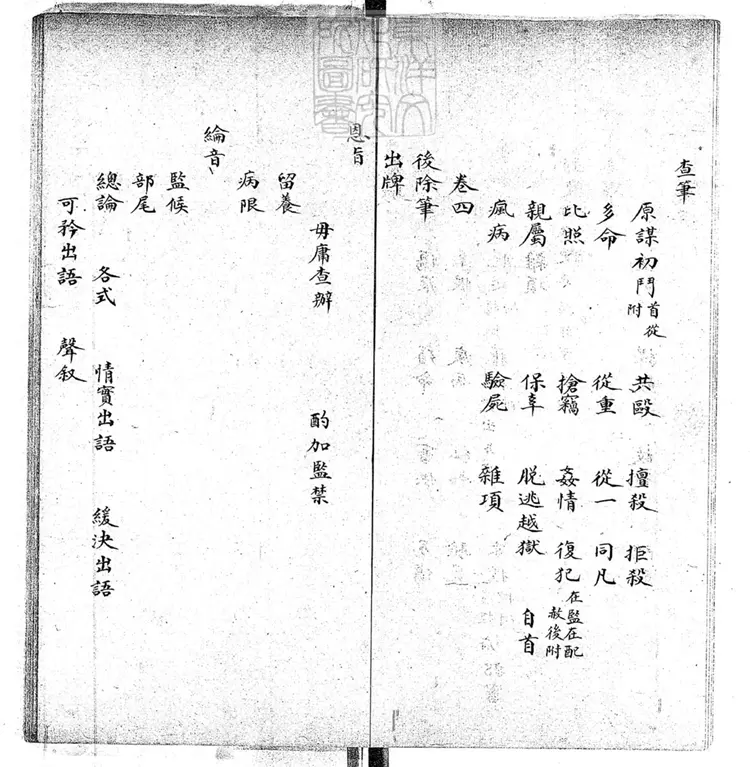 查筆
原謀初鬥 首從附 共毆 擅殺 拒殺
多命 從重 從一 同凡
比照 搶竊 姦情 復犯 在監在配赦後附
親屬 保辜 脫逃越獄 自首
瘋病 驗屍 雜項
卷四
後除筆
出牌
恩旨
毋庸查辦 酌加監禁
留養
病限
綸音
監候
部尾
總論 各式 情實出語 緩決出語
可矜出語 聲敘